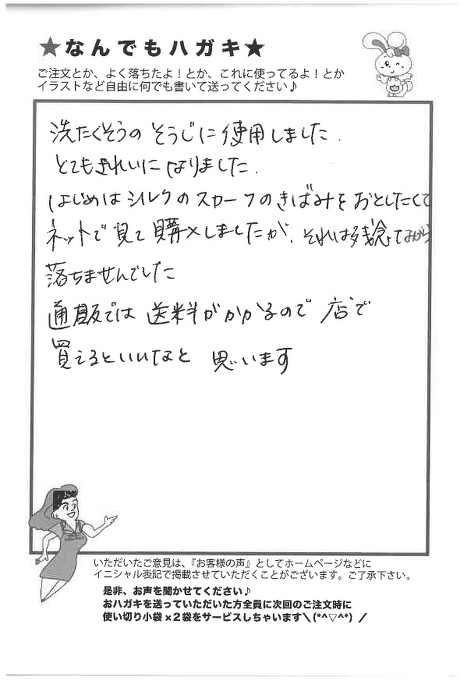 ★なんでもハガキ★
ご注文とか、よく落ちたよ！とか、これに使ってるよ！とか
イラストなど自由に何でも書いて送ってください♪
洗たくそうの そうじに 使用しました.
とてもきれいに なりました.
はじめは シルクの スカーフの きばみを おとしたくて
ネットで 見て 購入しましたが、それは残念ながら
落ちませんでした
通販では 送料が かかるので 店で
買えるといいなと 思います
いただいたご意見は、『お客様の声』としてホームページなどに
イニシャル表記で掲載させていただくことがございます。ご了承下さい。
是非、お声を聞かせてください♪
おハガキを送っていただいた方全員に次回のご注文時に
使い切り小袋ｘ2袋をサービスしちゃいます＼(*^▽^*)／